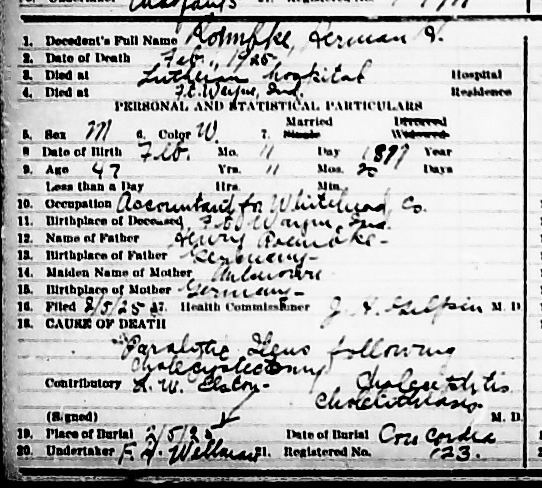 1. Decedent's Full Name Roempke, Herman H.
2. Date of Death Feb. , 1925
3. Died at Lutheran hospital Hospital
4. Died at Ft. Wayne, Ind. Residence
PERSONAL AND STATISTICAL PARTICULARS
5. Sex M 6. Color W. 7. Married Single Divorced Widowed
8 Date of Birth Feb. Mo. 11 Day 1877 Year
9. Age 47 Yrs. 11 Mos. 20 Days
Less than a Day Hrs. Min.
10. Occupation Accountant for Whitehead Co.
11. Birthplace of Deceased Ft. Wayne, Ind.
12. Name of Father Henry Roempke
13. Birthplace of Father Germany
14. Maiden Name of Mother Unknown
15. Birthplace of Mother Germany
16. Filed 2/5/25 17. Health Commissioner J. H. Gilpin M. D.
18. CAUSE OF DEATH
Paralytic Ileus following
Cholecystectomy
Contributory Cholecystitis
Cholelithiasis
(Signed) L. W. Elston M. D.
19. Place of Burial 2/5/25 Date of Burial Concordia
20. Undertaker Wellman 21. Registered No. 123.